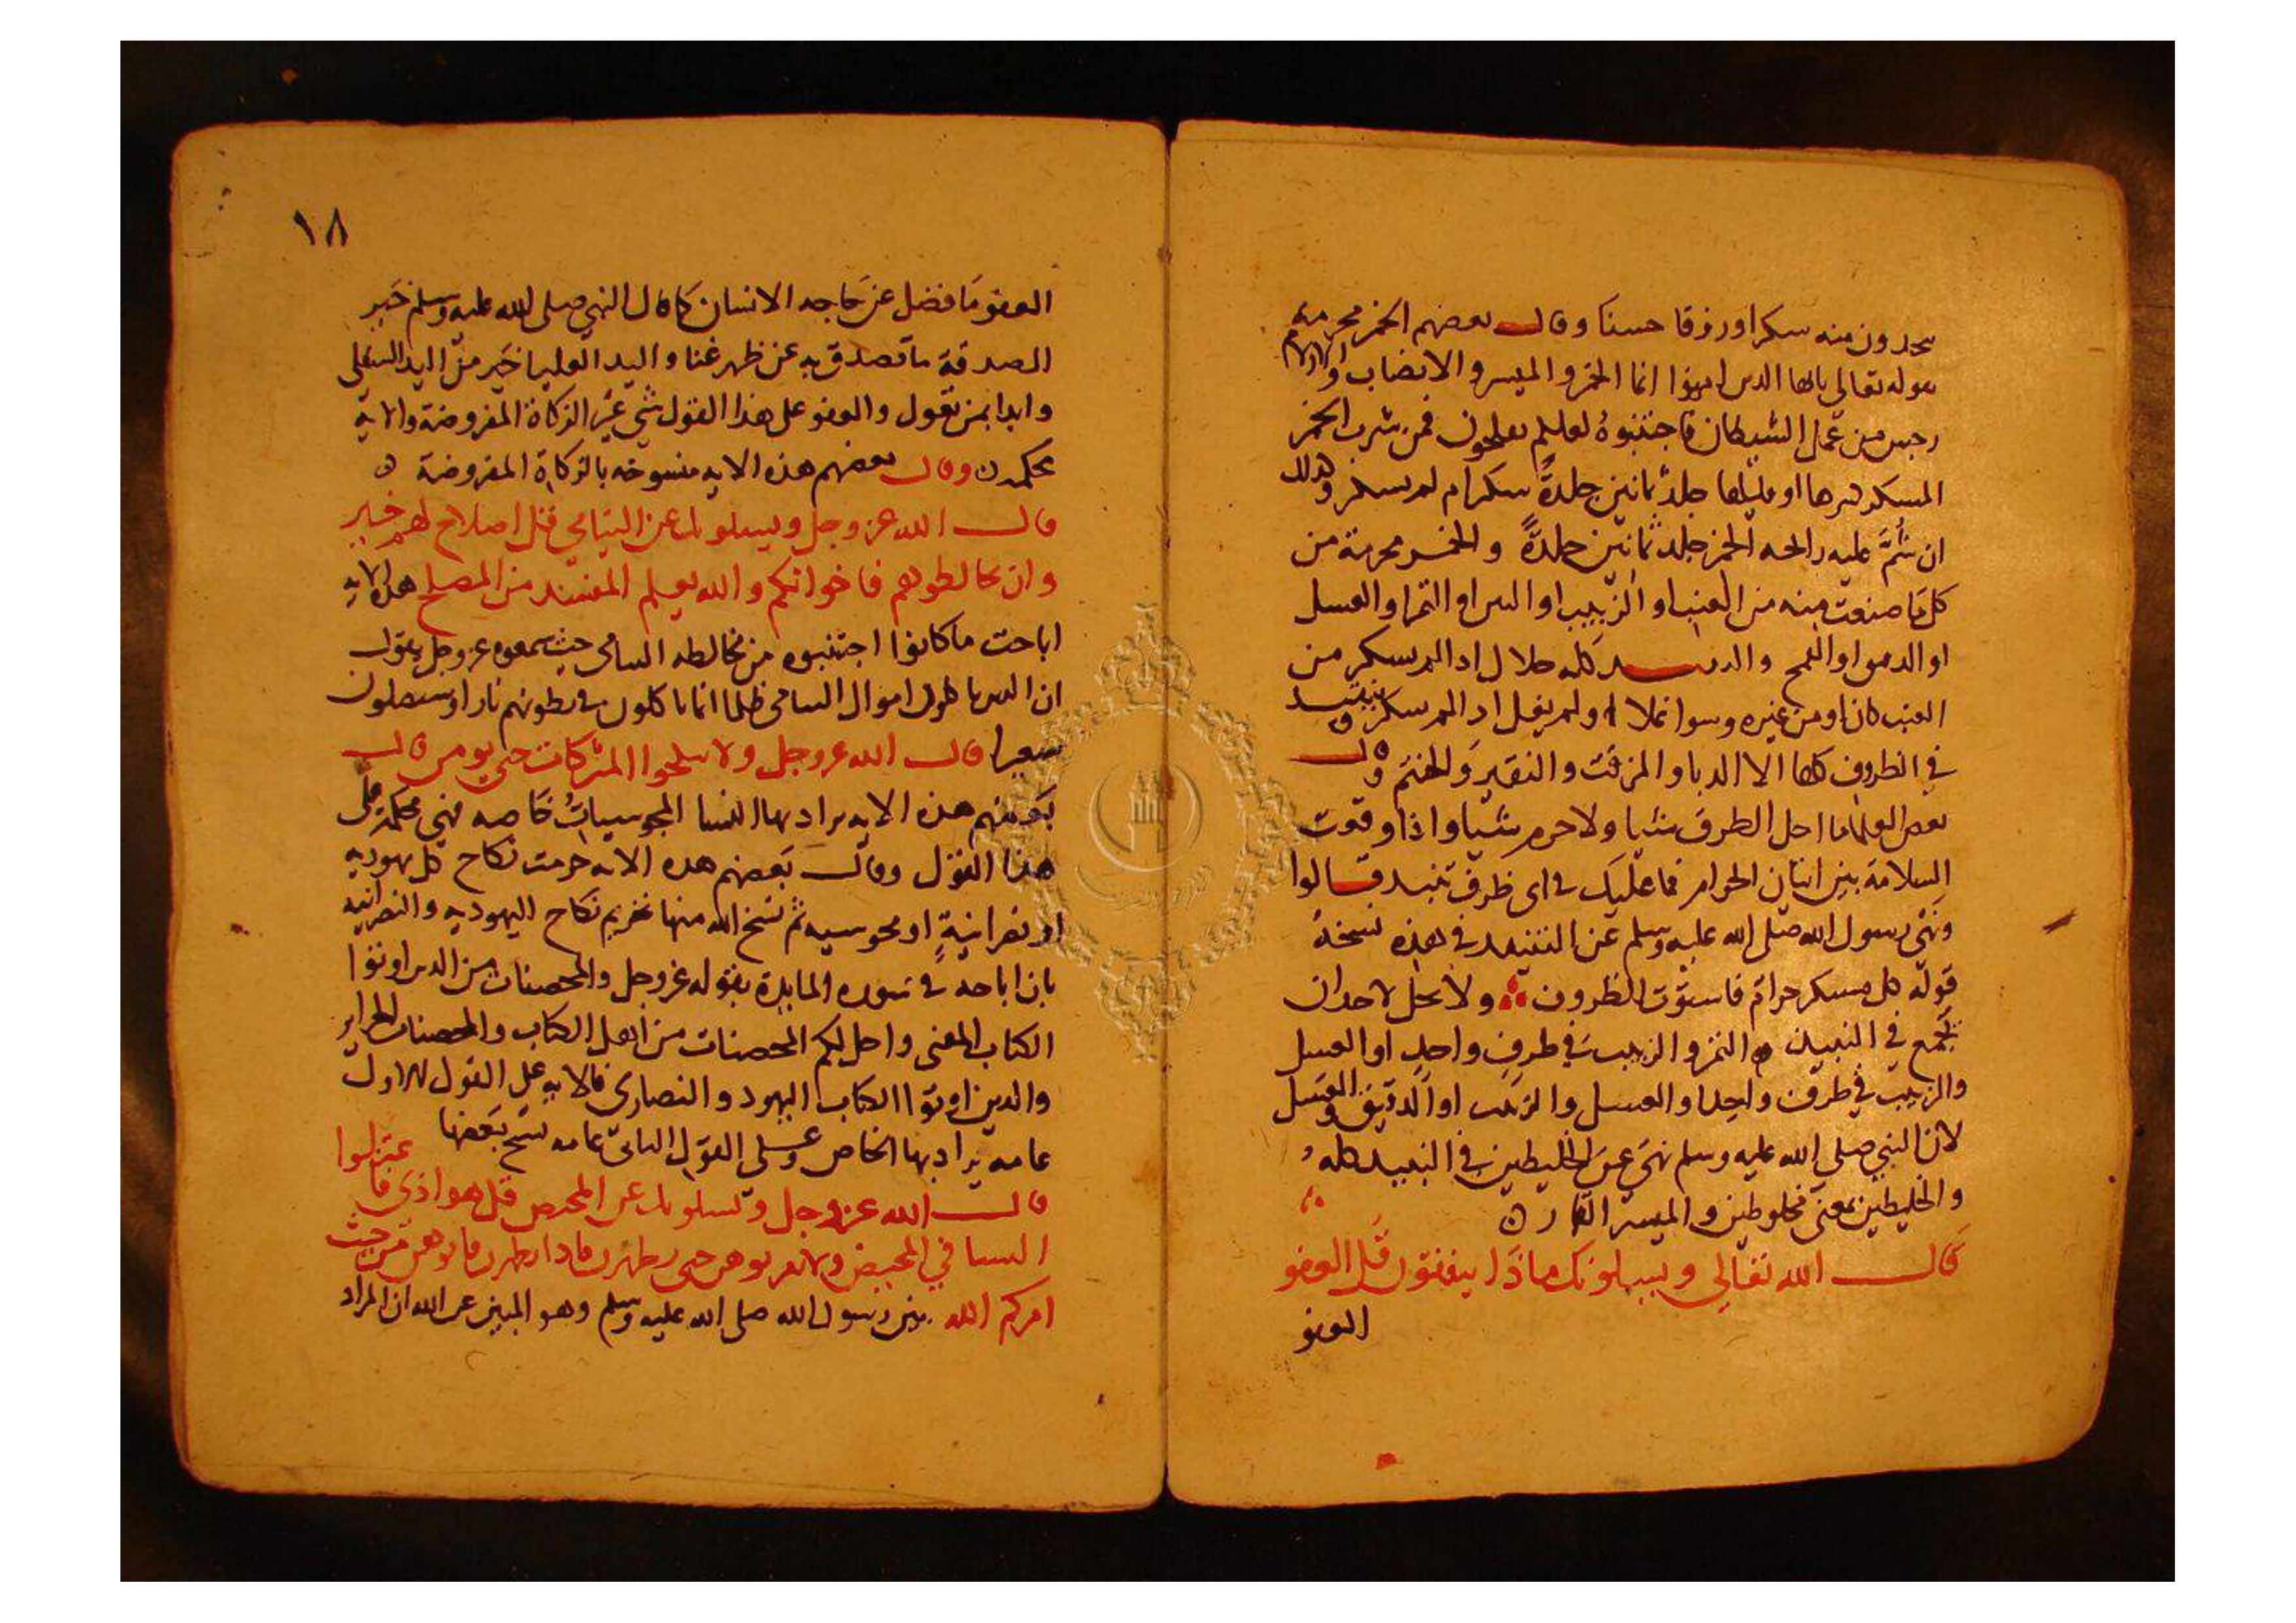 تتخذون منه سكرا ورزقا حسنا وقال بعضهم الخمر محرمة
بقوله تعالى يايها الذين امنوا انما الخمر والميسر والانصاب والازلام
رجس من عمل الشيطان فاجتنبوه لعلكم تفلحون فمن شرب الخمر
المسكر كثيرها او قليلها جلد ثمانين جلدة سكر ام لم يسكر وكذلك
ان شم عليه رائحه الخمر جلد ثمانين جلدة والخمر محرمة من
كل ما صنعت منه من العنب او الزبيب او البسر او التمر او العسل
او القمح والنبيذ كله حلال اذا لم يسكر من
العنب كان او من غيره وسوا غلا او لم يغل اذا لم يسكر وينتبذ
في الظروف كلها الا الدبا والمزفت والنقير والحنتم وقال
بعض العلماء ما احل الظرف شيا ولا حرم شيا واذا وقعت
السلامة بين اتيان الحرام فما عليك في اى ظرف تنبذ قالوا
ونهى رسول الله صلى الله عليه وسلم عن التنبيذ في هذه نسخه
قوله كل مسكر حرام فاستوت الظروف ولا يحل لاحد ان
يجمع في النبيذ التمر والزبيب في ظرف واحد او العسل
والزبيب في ظرف واحد او العسل والزبيب او الدقيق والعسل
لان النبي صلى الله عليه وسلم نهى عن الخليطين في النبيذ كله
والخليطين بمعنى مخلوطين والميسر القمار
قال الله تعالى ويسالونك ماذا ينفقون قل العفو
العفو
١٨
العفو ما فضل عن حاجه الانسان كما قال النبي صلى الله عليه وسلم خير
الصدقة ما تصدق به عن ظهر غنا واليد العليا خير من اليد السفلى
وابدا بمن تعول والعفو على هذا القول شي غير الزكاة المفروضة والاية
محكمة وقال بعضهم هذه الايه منسوخه بالزكاة المفروضة
قال الله عز وجل ويسلونك عن اليتامى قل اصلاح لهم خير
وان تخالطوهم فاخوانكم والله يعلم المفسد من المصلح هذه الايه
اباحت ما كانوا اجتنبوه من مخالطه اليتامى حيث سمعوه عز وجل يقول
ان الذين ياكلون اموال اليتامى ظلما انما ياكلون في بطونهم نارا وسيصلون
سعيرا قال الله عز وجل ولا تنكحوا المشركات حتى يومن قال
بعضهم هذه الايه يراد بها النسا المجوسيات خاصه فهي محكمة على
هذا القول وقال بعضهم هذه الايه حرمت نكاح كل يهوديه
او نصرانية او مجوسيه ثم نسخ الله منها تحريم نكاح اليهوديه والنصرانيه
بان اباحه في سوره المايدة بقوله عز وجل والمحصنات من الذين اوتوا
الكتاب المعنى واحل لكم المحصنات من اهل الكتاب والمحصنات الحراير
والذين اوتوا الكتاب اليهود والنصارى فالايه على القول الاول
عامه يراد بها الخاص وعلى القول الثاني عامه نسخ بعضها
قال الله عز وجل ويسلونك عن المحيض قل هو اذى فاعتزلوا
النسا في المحيض ولا تقربوهن حتى يطهرن فاذا تطهرن فاتوهن من حيث
امركم الله بين رسول الله صلى الله عليه وسلم وهو المبين عن الله ان المراد